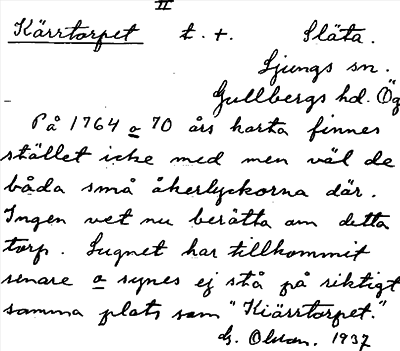 II
Kärrtorpet t. +. Släta.
Ljungs sn.
Gullbergs hd. Ög
På 1764 a 70 års karta finnes
stället icke med men väl de
båda små åkerlyckorna där.
Ingen vet nu berätta om detta
torp. Lugnet har tillkommit
senare a synes ej stå på riktigt
samma plats som "Kiärrtorpet."
G. Olson. 1937